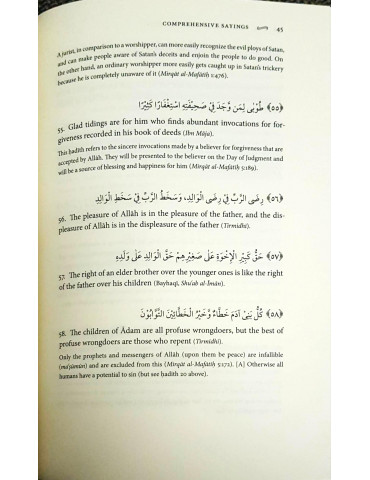 COMPREHENSIVE SAYINGS 45
A jurist, in comparison to a worshipper, can more easily recognize the evil ploys of Satan,
and can make people aware of Satan's deceits and enjoin the people to do good. On
the other hand, an ordinary worshipper more easily gets caught up in Satan's trickery
because he is completely unaware of it (Mirqāt al-Mafātīḥ 1:476).
﴿٥٥﴾ طُوْبٰى لِمَنْ وَّجَدَ فِيْ صَحِيْفَتِهِ اسْتِغْفَارًا كَثِيْرًا
55. Glad tidings are for him who finds abundant invocations for for-
giveness recorded in his book of deeds (Ibn Māja).
This ḥadīth refers to the sincere invocations made by a believer for forgiveness that are
accepted by Allāh. They will be presented to the believer on the Day of Judgment and
will be a source of blessing and happiness for him (Mirqāt al-Mafātīḥ 5:189).
﴿٥٦﴾ رِضَى الرَّبِّ فِيْ رِضَى الْوَالِدِ، وَسَخَطُ الرَّبِّ فِيْ سَخَطِ الْوَالِدِ
56. The pleasure of Allāh is in the pleasure of the father, and the dis-
pleasure of Allāh is in the displeasure of the father (Tirmidhī).
﴿٥٧﴾ حَقُّ كَبِيْرِ الْإِخْوَةِ عَلٰى صَغِيْرِهِمْ حَقُّ الْوَالِدِ عَلٰى وَلَدِهِ
57. The right of an elder brother over the younger ones is like the right
of the father over his children (Bayhaqī, Shuʿab al-Īmān).
﴿٥٨﴾ كُلُّ بَنِيْ آدَمَ خَطَّاءٌ وَّخَيْرُ الْخَطَّائِيْنَ التَّوَّابُوْنَ
58. The children of Ādam are all profuse wrongdoers, but the best of
profuse wrongdoers are those who repent (Tirmidhī).
Only the prophets and messengers of Allāh (upon them be peace) are infallible
(maʿṣūmūn) and are excluded from this (Mirqāt al-Mafātīḥ 5:172). [A] Otherwise all
humans have a potential to sin (but see ḥadīth 20 above).